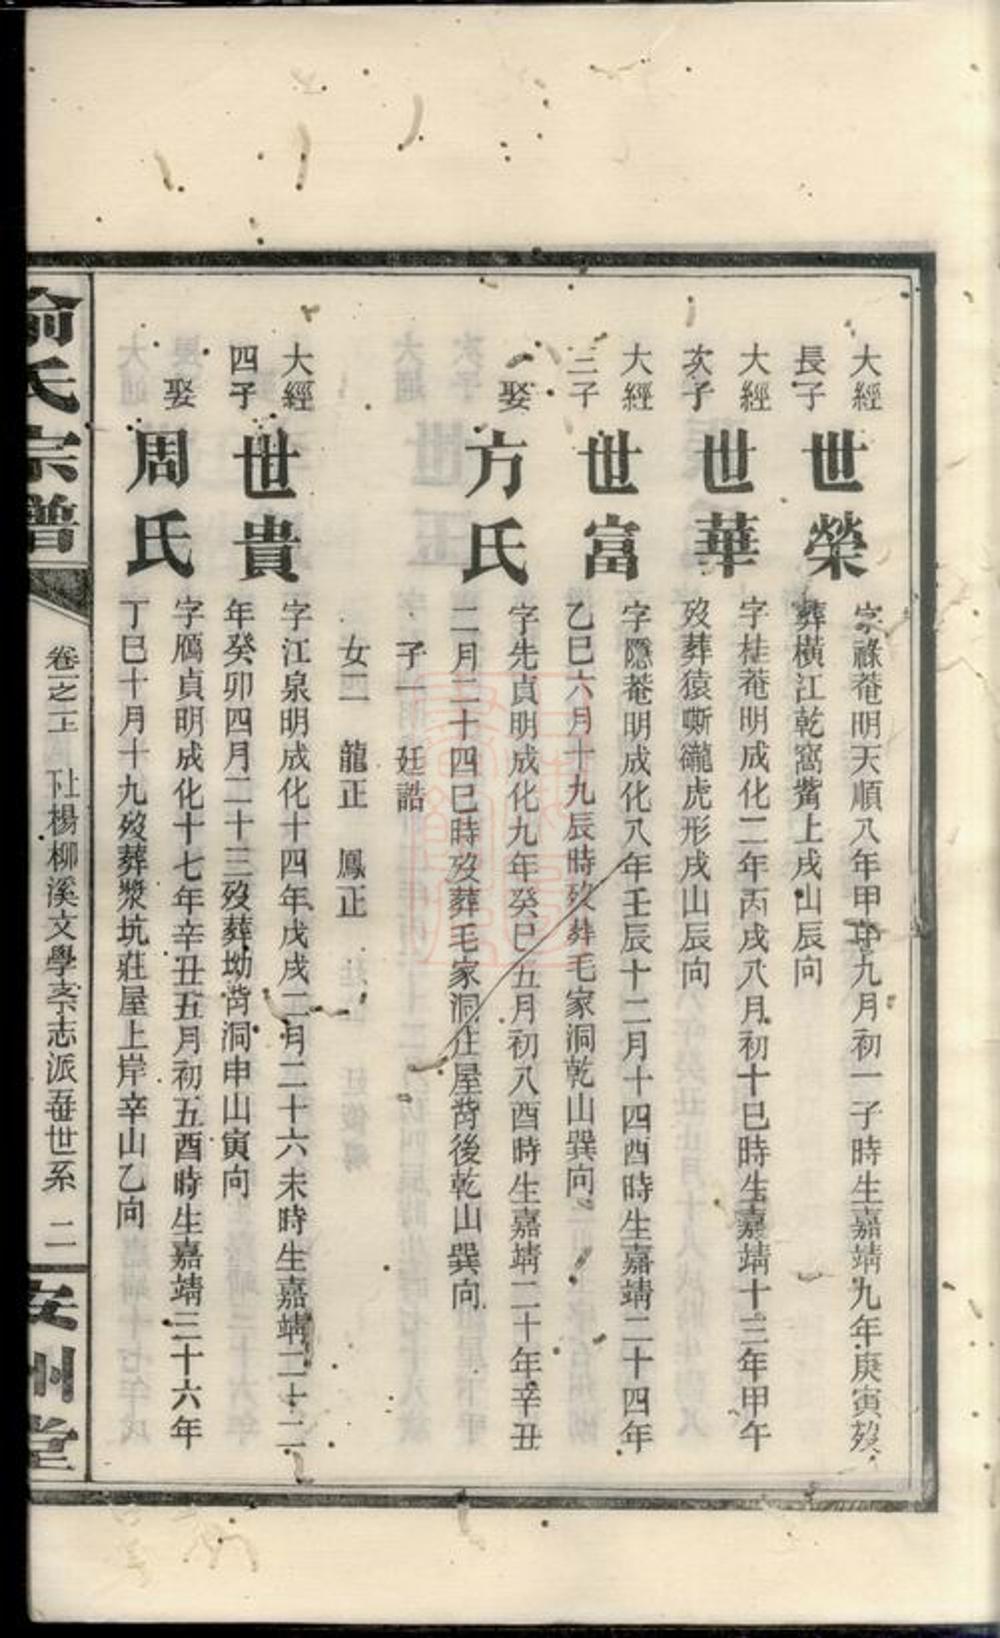 大經
長子
世榮
字祿菴明天順八年甲申九月初一子時生嘉靖九年庚寅歿
葬橫江乾窩觜上戌山辰向
大經
次子
世華
字桂菴明成化二年丙戌八月初十巳時生嘉靖十三年甲午
歿葬猿嘶巃虎形戌山辰向
大經
三子
世富
字隱菴明成化八年壬辰十二月十四酉時生嘉靖二十四年
乙巳六月十九辰時歿葬毛家洞乾山巽向
娶
方氏
字先貞明成化九年癸巳五月初八酉時生嘉靖二十年辛丑
二月二十四巳時歿葬毛家洞庄屋背後乾山巽向
子一 廷誥
女二 龍正 鳳正
大經
四子
世貴
字江泉明成化十四年戊戌二月二十六未時生嘉靖二十二
年癸卯四月二十三歿葬坳背洞申山寅向
娶
周氏
字鴈貞明成化十七年辛丑五月初五酉時生嘉靖三十六年
丁巳十月十九歿葬漿坑莊屋上岸辛山乙向
俞氏宗譜
卷之上 社楊柳溪文學志派世系 二
安州堂